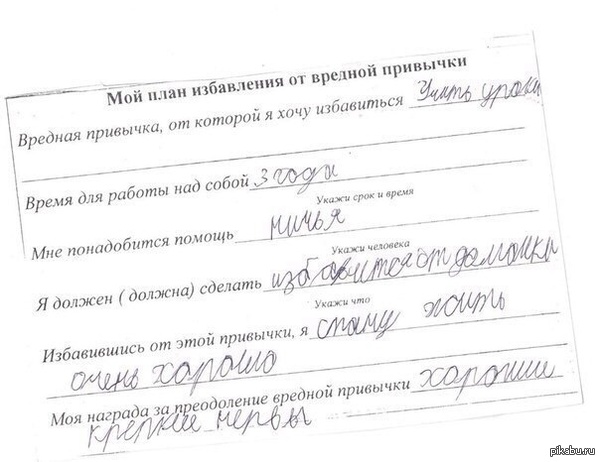 Мой план избавления от вредной привычки
Вредная привычка, от которой я хочу избавиться Учить уроки
Время для работы над собой 3 годы
Укажи срок и время
Мне понадобится помощь ничья
Укажи человека
Я должен ( должна) сделать избавится от домашки
Укажи что
Избавившись от этой привычки, я стану жить
очень хорошо
Моя награда за преодоление вредной привычки хорошии
крепкие нервы
pikabu.ru